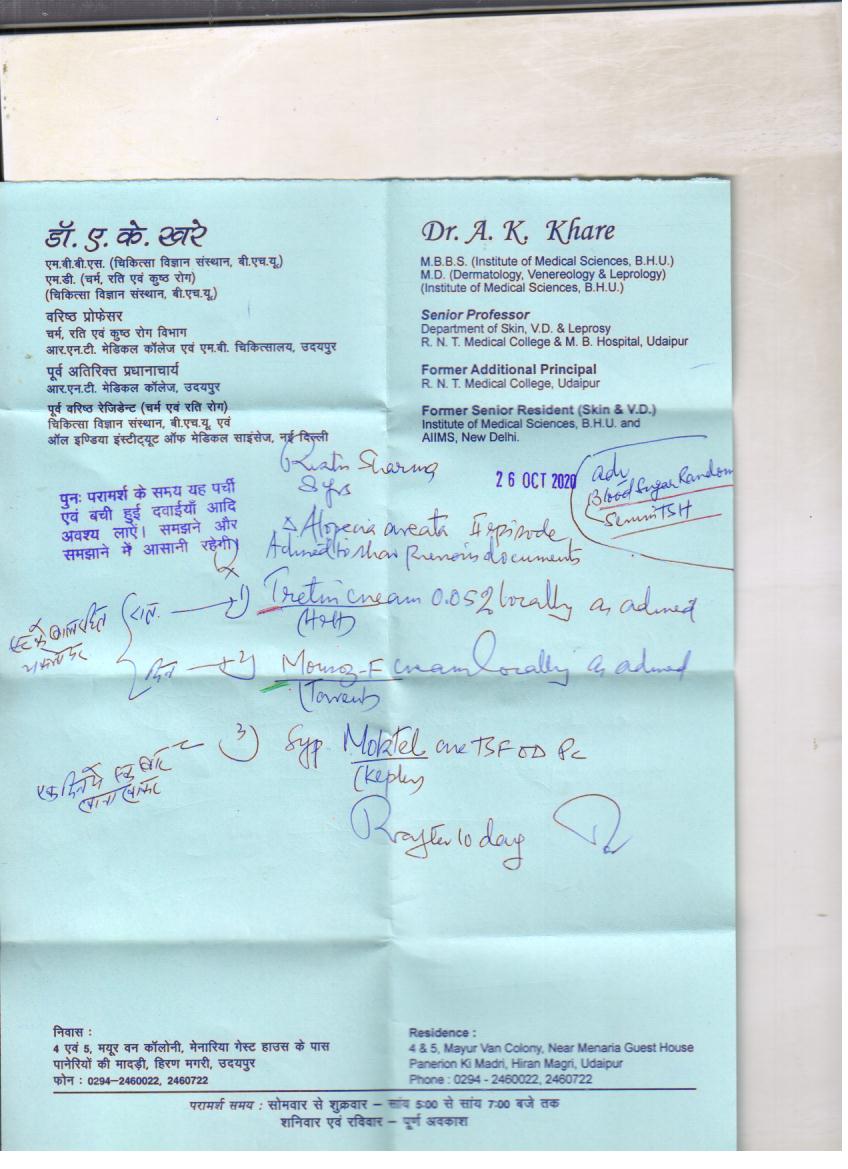 डॉ. ए. के. खरे
एम.बी.बी.एस. (चिकित्सा विज्ञान संस्थान, बी.एच.यू.)
एम.डी. (चर्म, रति एवं कुष्ठ रोग)
(चिकित्सा विज्ञान संस्थान, बी.एच.यू.)
वरिष्ठ प्रोफेसर
चर्म, रति एवं कुष्ठ रोग विभाग
आर.एन.टी. मेडिकल कॉलेज एवं एम.बी. चिकित्सालय, उदयपुर
पूर्व अतिरिक्त प्रधानाचार्य
आर.एन.टी. मेडिकल कॉलेज, उदयपुर
पूर्व वरिष्ठ रेजिडेन्ट (चर्म एवं रति रोग)
चिकित्सा विज्ञान संस्थान, बी.एच.यू. एवं
ऑल इण्डिया इंस्टीट्यूट ऑफ मेडिकल साइंसेज, नई दिल्ली
Dr. A. K. Khare
M.B.B.S. (Institute of Medical Sciences, B.H.U.)
M.D. (Dermatology, Venereology & Leprology)
(Institute of Medical Sciences, B.H.U.)
Senior Professor
Department of Skin, V.D. & Leprosy
R. N. T. Medical College & M. B. Hospital, Udaipur
Former Additional Principal
R. N. T. Medical College, Udaipur
Former Senior Resident (Skin & V.D.)
Institute of Medical Sciences, B.H.U. and
AIIMS, New Delhi.
पुनः परामर्श के समय यह पर्ची
एवं बची हुई दवाईयाँ आदि
अवश्य लाएँ। समझने और
समझाने में आसानी रहेगी।
Sharma
8 yrs
26 OCT 2020
adv
Blood Sugar Random
Serum TSH
Δ Alopecia areata II episode
Advised to show previous documents
रात 1) Tretin cream 0.05% locally as advised
दिन 2) Momoz-F cream locally as advised
(Torrent)
3) Syp. one TSF OD PC
एक दिन में एक बार
खाना खाकर
R after 10 day
निवास :
4 एवं 5, मयूर वन कॉलोनी, मेनारिया गेस्ट हाउस के पास
पानेरियों की मादड़ी, हिरण मगरी, उदयपुर
फोन : 0294-2460022, 2460722
Residence :
4 & 5, Mayur Van Colony, Near Menaria Guest House
Panerion Ki Madri, Hiran Magri, Udaipur
Phone : 0294 - 2460022, 2460722
परामर्श समय : सोमवार से शुक्रवार – सांय 5:00 से सांय 7:00 बजे तक
शनिवार एवं रविवार – पूर्ण अवकाश